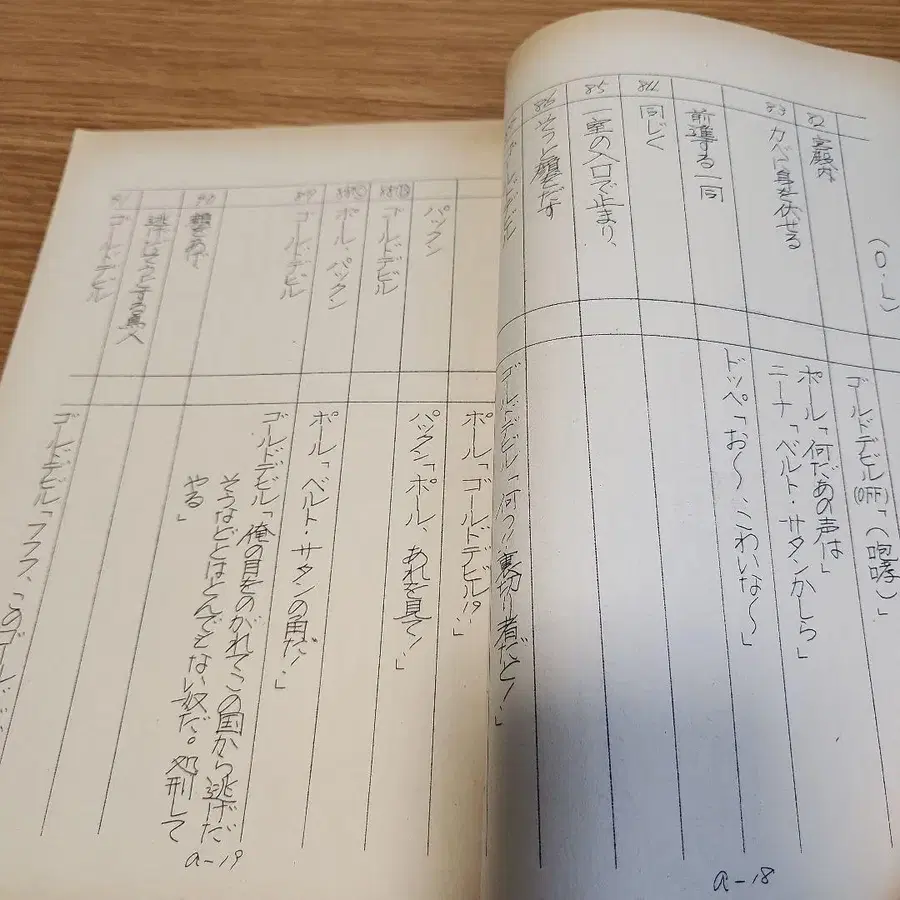 (O・L)
82 宮殿内
83 カベに身を伏せる
前進する一同
84 同じく
85 一室の入口で止まり、
86 そっと顔をだす
ゴールドデビル(OFF)「(咆哮)」
ポール「何だあの声は」
ニーナ「ベルト・サタンかしら」
ドッペ「お〜、こわいな〜」
ゴールドデビル「何っ!!裏切り者だと!」
a-18
パックン
ゴールドデビル
ポール・パックン
89 ゴールドデビル
90
逃げようとする
91 ゴールドデビル
ポール「ゴールドデビル!?」
パックン「ポール、あれを見て!」
ポール「ベルト・サタンの角だ!」
ゴールドデビル「俺の目をのがれてこの国から逃げだ
そうなどとはとんでもない奴だ。処刑して
やる」
ゴールドデビル「フフフ、このゴールド
a-19